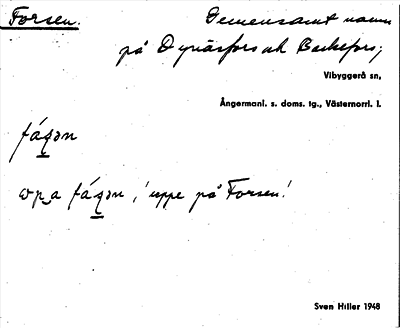 Forsen. Gemensamt namn
på Dynäsfors och Backefors;
Vibyggerå sn,
Ångermanl. s. doms. tg., Västernorrl. l.
fáʂən
ɯp a fáʂən, 'uppe på Forsen'
Sven Hiller 1948